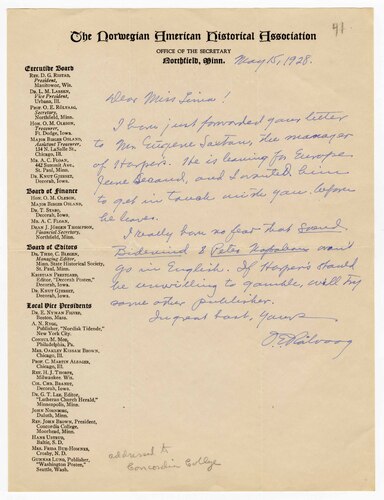 41
The Norwegian American Historical Association
OFFICE OF THE SECRETARY
Northfield, Minn.
May 15, 1928.
Executive Board
REV. D. G. RISTAD,
President,
Manitowoc, Wis.
DR. L. M. LARSON,
Vice President,
Urbana, Ill.
PROF. O. E. RÖLVAAG,
Secretary,
Northfield, Minn.
HON. O. M. OLESON,
Treasurer,
Ft. Dodge, Iowa.
MAJOR BIRGER OSLAND,
Assistant Treasurer,
134 N. LaSalle St.,
Chicago, Ill.
MR. A. C. FLOAN,
442 Summit Ave.,
St. Paul, Minn.
DR. KNUT GJERSET,
Decorah, Iowa.
Board of Finance
HON. O. M. OLESON,
MAJOR BIRGER OSLAND,
DR. T. STABO,
Decorah, Iowa.
MR. A. C. FLOAN,
DEAN J. JÖRGEN THOMPSON,
Financial Secretary,
Northfield, Minn.
Board of Editors
DR. THEO. C. BLEGEN,
Managing Editor,
Minn. State Historical Society,
St. Paul, Minn.
KRISTIAN PRESTGARD,
Editor, "Decorah Posten,"
Decorah, Iowa.
DR. KNUT GJERSET,
Decorah, Iowa.
Local Vice Presidents
DR. E. NYMAN FIGVED,
Boston, Mass.
A. N. RYGG,
Publisher, "Nordisk Tidende,"
New York City.
CONSUL M. MOE,
Philadelphia, Pa.
MRS. OAKLEY KISSAM BROWN,
Chicago, Ill.
PROF. C. MARTIN ALSAGER,
Chicago, Ill.
REV. H. J. THORPE,
Milwaukee, Wis.
COL. CHR. BRANDT,
Decorah, Iowa.
DR. G. T. LEE, Editor,
"Lutheran Church Herald,"
Minneapolis, Minn.
JOHN NORDBERG,
Duluth, Minn.
REV. JOHN BROWN, President,
Concordia College,
Moorhead, Minn.
HANS USTRUD,
Baltic, S. D.
MRS. FRIDA BUE-HOMNES,
Crosby, N. D.
GUNNAR LUND, Publisher,
"Washington Posten,"
Seattle, Wash.
Dear Miss
I have just forwarded your letter
to Mr. Eugene Saxton, the manager
of Harper's. He is leaving for Europe
June second, and I wanted him
to get in touch with you before
he leaves.
I really have no fear that
& Peter won't
go in English. If Harper's should
be unwilling to gamble, will try
some other publisher.
In great haste, Yours
O. E. Rölvaag
addressed to
Concordia College